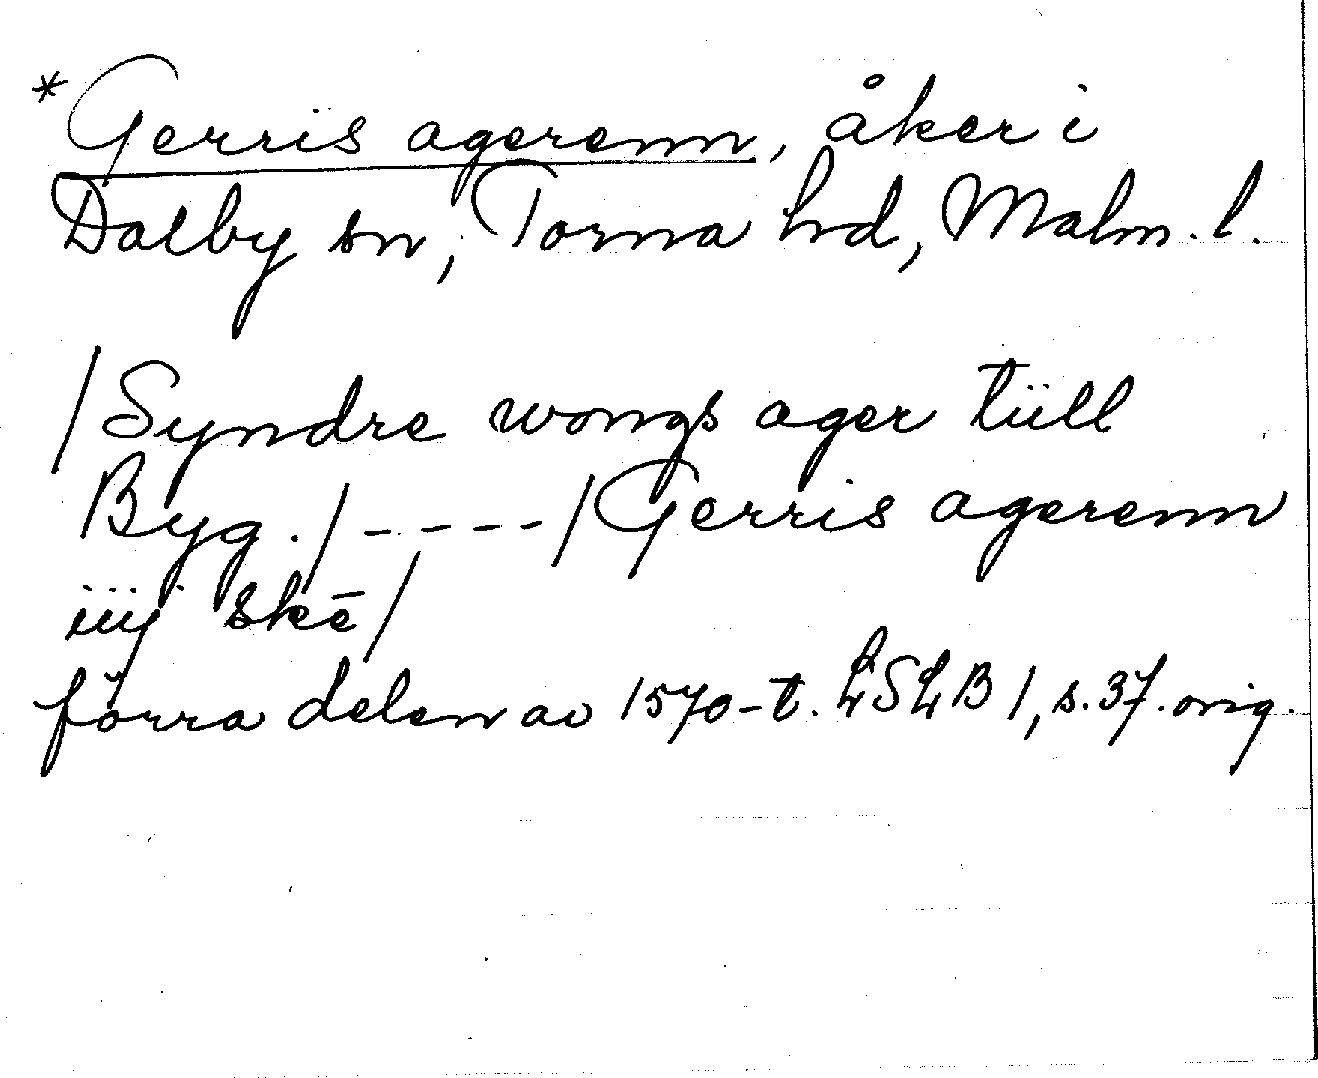 *Gerris agerenn, åker i
Dalby sn, Torna hd, Malm. l.
/Syndre wongs ager tüll
Byg./----/Gerris agerenn
iiij skē/
förra delen av 1570-t. LSLB 1, s. 37. orig.